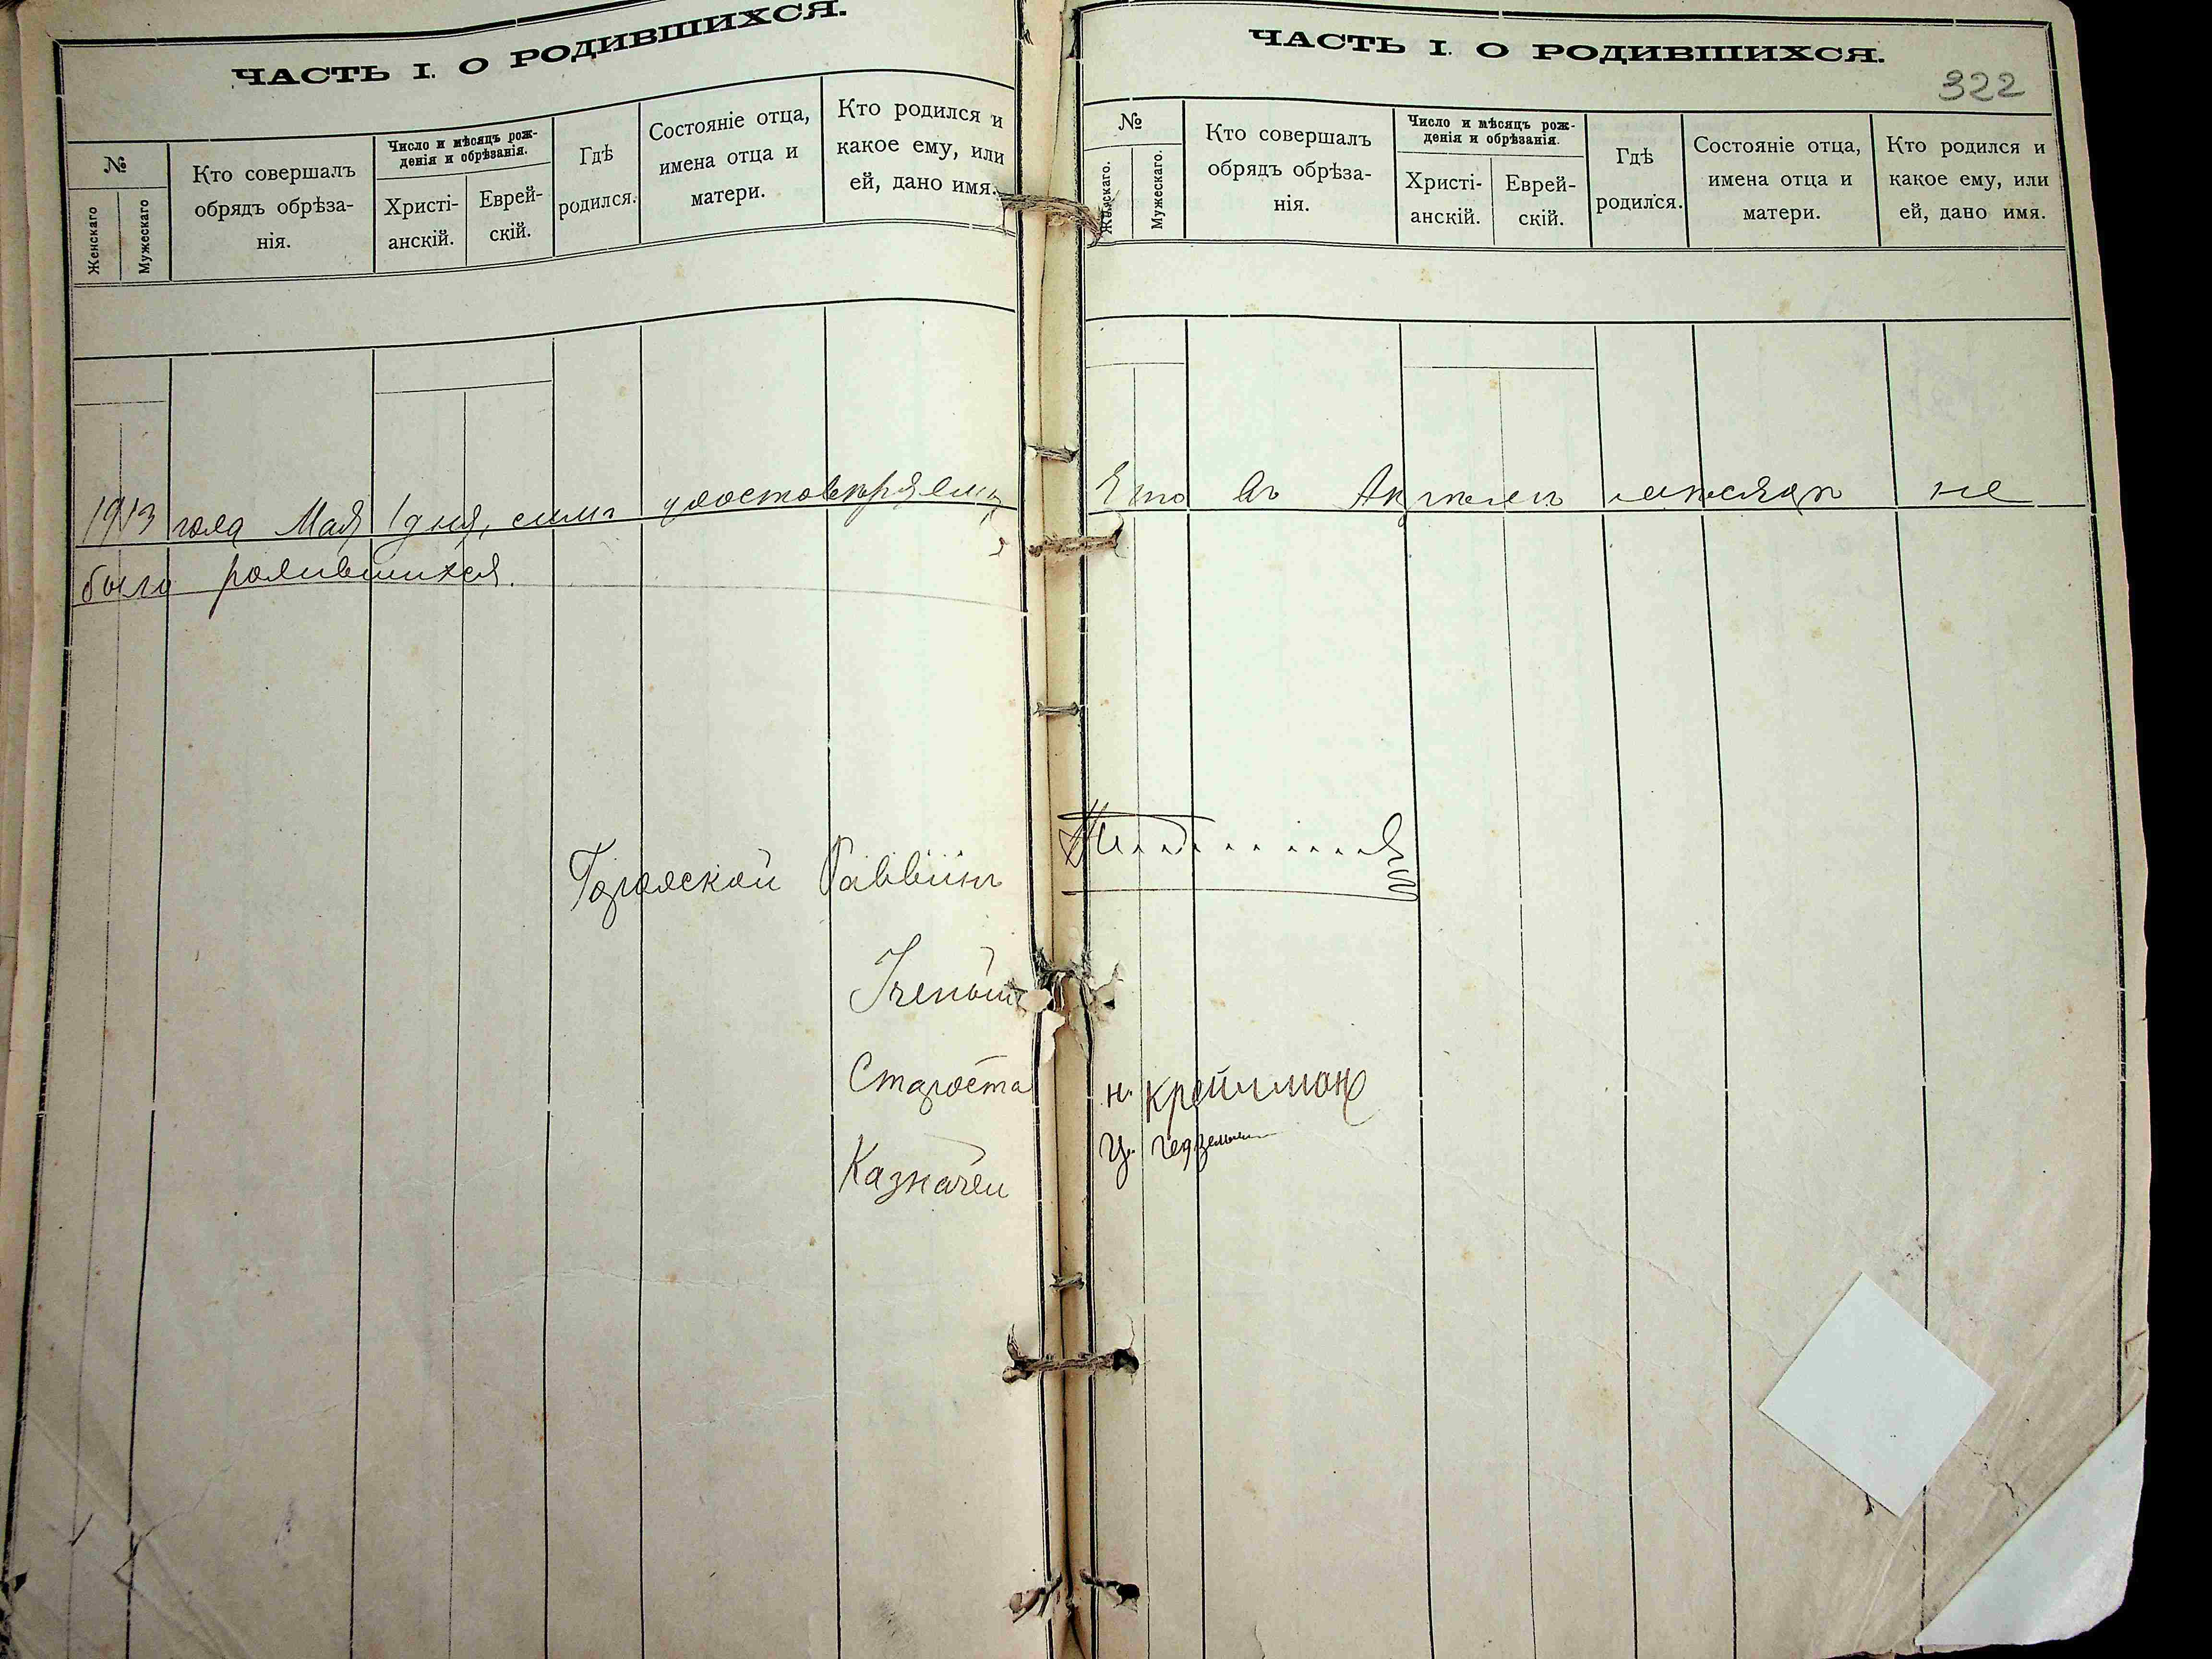 ЧАСТЬ I. О РОДИВШИХСЯ.
№
Женскаго
Мужескаго
Кто совершалъ
обрядъ обрѣза-
нія.
Число и мѣсяцъ рож-
денія и обрѣзанія.
Христі-
анскій.
Еврей-
скій.
Гдѣ
родился.
Состояніе отца,
имена отца и
матери.
Кто родился и
какое ему, или
ей, дано имя.
ЧАСТЬ I. О РОДИВШИХСЯ.
322
№
Женскаго.
Мужескаго.
Кто совершалъ
обрядъ обрѣза-
нія.
Число и мѣсяцъ рож-
денія и обрѣзанія.
Христі-
анскій.
Еврей-
скій.
Гдѣ
родился.
Состояніе отца,
имена отца и
матери.
Кто родился и
какое ему, или
ей, дано имя.
1913 года Мая 1 дня, симъ удостовѣряемъ Что въ Апрѣлѣ мѣсяцѣ не
было родившихся.
Городской Раввинъ
Ученый
Староста Н. Крейчман
Казначей Ц.